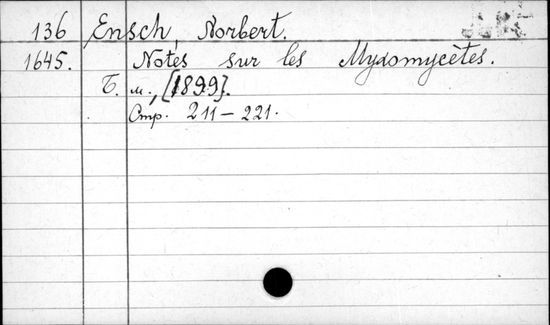 136 Ensch, Norbert.
1645. Notes sur les Myxomycètes.
Б. м., [1899].
Стр. 211-221.